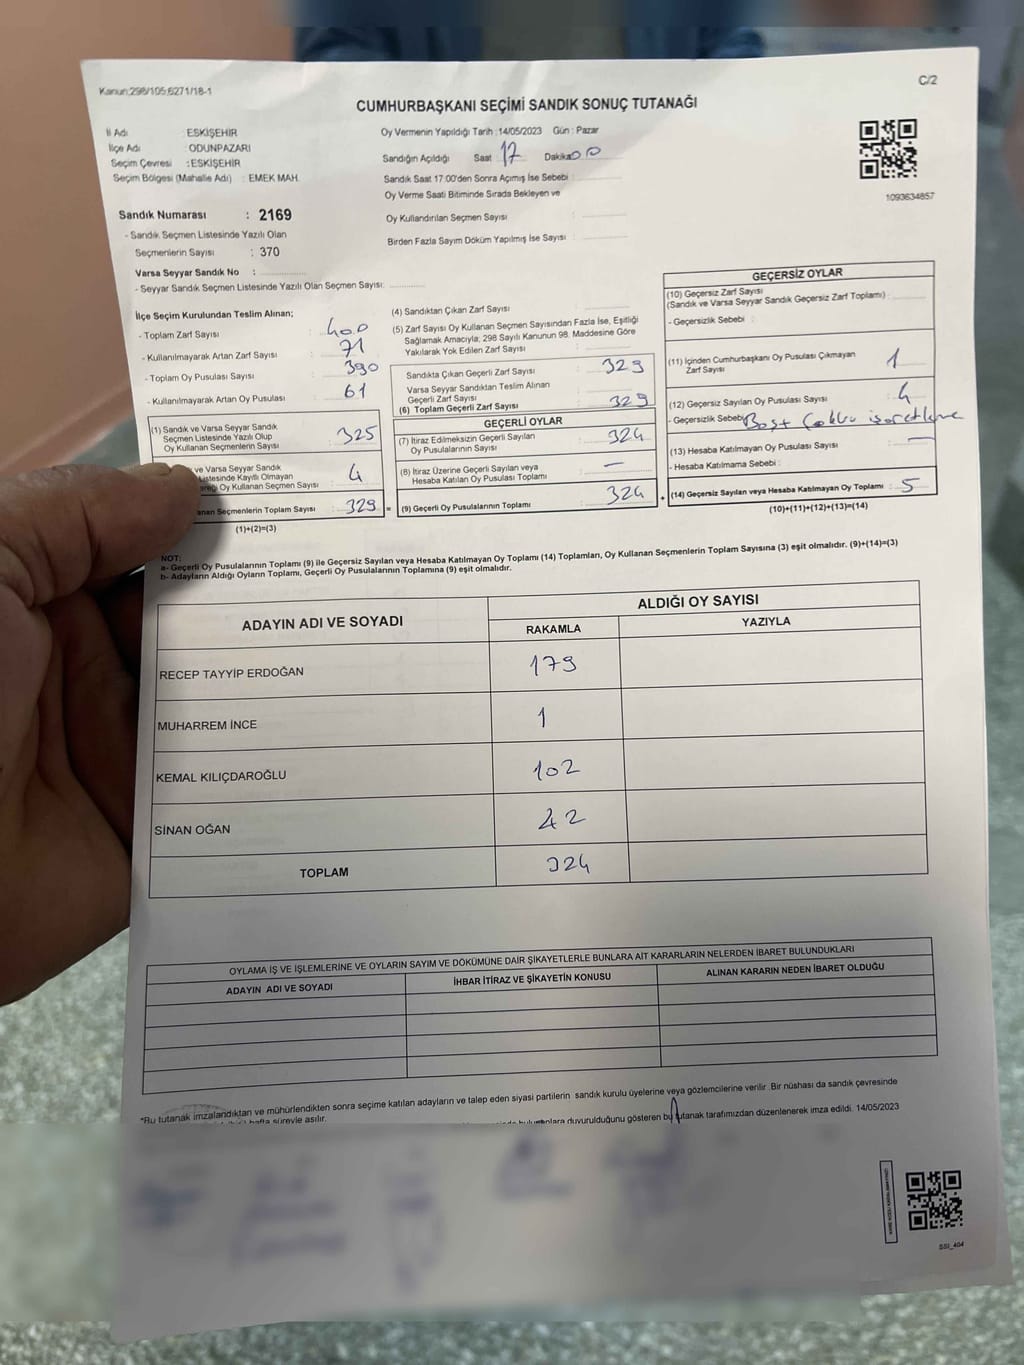 Kanun;298/105;6271/18-1
C/2
CUMHURBAŞKANI SEÇİMİ SANDIK SONUÇ TUTANAĞI
İl Adı : ESKİŞEHİR
İlçe Adı : ODUNPAZARI
Seçim Çevresi : ESKİŞEHİR
Seçim Bölgesi (Mahalle Adı) : EMEK MAH.
Oy Vermenin Yapıldığı Tarih :14/05/2023 Gün : Pazar
Sandığın Açıldığı Saat 17 Dakika 00
Sandık Saat 17:00'den Sonra Açımış İse Sebebi :
Oy Verme Saati Bitiminde Sırada Bekleyen ve
Oy Kullandırılan Seçmen Sayısı :
Birden Fazla Sayım Döküm Yapılmış İse Sayısı :
1093634857
Sandık Numarası : 2169
- Sandık Seçmen Listesinde Yazılı Olan
Seçmenlerin Sayısı : 370
Varsa Seyyar Sandık No :
- Seyyar Sandık Seçmen Listesinde Yazılı Olan Seçmen Sayısı:
İlçe Seçim Kurulundan Teslim Alınan;
- Toplam Zarf Sayısı : 400
- Kullanılmayarak Artan Zarf Sayısı : 71
- Toplam Oy Pusulası Sayısı : 390
- Kullanılmayarak Artan Oy Pusulası : 61
(1) Sandık ve Varsa Seyyar Sandık
Seçmen Listesinde Yazılı Olup
Oy Kullanan Seçmenlerin Sayısı : 325
ve Varsa Seyyar Sandık
Listesinde Kayıtlı Olmayan
Oy Kullanan Seçmen Sayısı : 4
Seçmenlerin Toplam Sayısı : 329 =
(1)+(2)=(3)
(4) Sandıktan Çıkan Zarf Sayısı :
(5) Zarf Sayısı Oy Kullanan Seçmen Sayısından Fazla İse, Eşitliği
Sağlamak Amacıyla; 298 Sayılı Kanunun 98. Maddesine Göre
Yakılarak Yok Edilen Zarf Sayısı :
Sandıkta Çıkan Geçerli Zarf Sayısı : 329
Varsa Seyyar Sandıktan Teslim Alınan
Geçerli Zarf Sayısı :
(6) Toplam Geçerli Zarf Sayısı : 329
GEÇERLİ OYLAR
(7) İtiraz Edilmeksizin Geçerli Sayılan
Oy Pusulalarının Sayısı : 324
(8) İtiraz Üzerine Geçerli Sayılan veya
Hesaba Katılan Oy Pusulası Toplamı : —
(9) Geçerli Oy Pusulalarının Toplamı : 324 +
GEÇERSİZ OYLAR
(10) Geçersiz Zarf Sayısı
(Sandık ve Varsa Seyyar Sandık Geçersiz Zarf Toplamı) :
- Geçersizlik Sebebi :
(11) İçinden Cumhurbaşkanı Oy Pusulası Çıkmayan
Zarf Sayısı : 1
(12) Geçersiz Sayılan Oy Pusulası Sayısı : 4
- Geçersizlik Sebebi Boş+ Çoklu işaretleme
(13) Hesaba Katılmayan Oy Pusulası Sayısı : —
- Hesaba Katılmama Sebebi :
(14) Geçersiz Sayılan veya Hesaba Katılmayan Oy Toplamı : 5
(10)+(11)+(12)+(13)=(14)
NOT:
a- Geçerli Oy Pusulalarının Toplamı (9) ile Geçersiz Sayılan veya Hesaba Katılmayan Oy Toplamı (14) Toplamları, Oy Kullanan Seçmenlerin Toplam Sayısına (3) eşit olmalıdır. (9)+(14)=(3)
b- Adayların Aldığı Oyların Toplamı, Geçerli Oy Pusulalarının Toplamına (9) eşit olmalıdır.
ADAYIN ADI VE SOYADI
ALDIĞI OY SAYISI
RAKAMLA
YAZIYLA
RECEP TAYYİP ERDOĞAN 179
MUHARREM İNCE 1
KEMAL KILIÇDAROĞLU 102
SİNAN OĞAN 42
TOPLAM 324
OYLAMA İŞ VE İŞLEMLERİNE VE OYLARIN SAYIM VE DÖKÜMÜNE DAİR ŞİKAYETLERLE BUNLARA AİT KARARLARIN NELERDEN İBARET BULUNDUKLARI
ADAYIN ADI VE SOYADI
İHBAR İTİRAZ VE ŞİKAYETİN KONUSU
ALINAN KARARIN NEDEN İBARET OLDUĞU
*Bu tutanak imzalandıktan ve mühürlendikten sonra seçime katılan adayların ve talep eden siyasi partilerin sandık kurulu üyelerine veya gözlemcilerine verilir. Bir nüshası da sandık çevresinde
hafta süreyle asılır. duyurulduğunu gösteren bu tutanak tarafımızdan düzenlenerek imza edildi. 14/05/2023
SSI_404